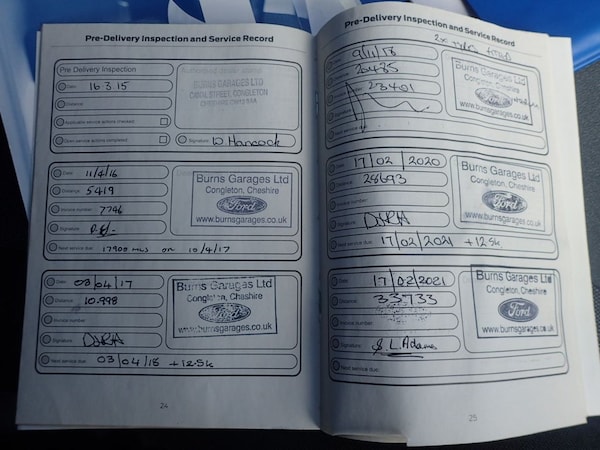 Pre-Delivery Inspection and Service Record
Pre Delivery Inspection
Date: 16 3.15
Distance:
Applicable service actions checked:
Open service actions completed:
BURNS GARAGES LTD
CANAL STREET, CONGLETON
Signature: W Hancock
Date: 11/4/16
Distance: 5419
Invoice number: 7746
Signature:
Next service due: 17900 MLS on 10/4/17
Burns Garages Ltd
Congleton, Cheshire
Ford
www.burnsgarages.co.uk
Date: 03/04/17
Distance: 10.998
Invoice number:
Signature:
Next service due: 03/04/18 +12.5k
Burns Garages Ltd
Congleton, Cheshire
Ford
www.burnsgarages.co.uk
24
Pre-Delivery Inspection and Service Record
9/11/18
23401
Burns Garages Ltd
Congleton, Cheshire
Ford
www.burnsgarages.co.uk
Date: 17/02/2020
Distance: 28693
Invoice number:
Signature:
Next service due: 17/02/2021 +12.5k
Burns Garages Ltd
Congleton, Cheshire
Ford
www.burnsgarages.co.uk
Date: 17/02/2021
Distance: 33733
Invoice number:
Signature: L. Adams
Next service due:
Burns Garages Ltd
Congleton, Cheshire
Ford
www.burnsgarages.co.uk
25